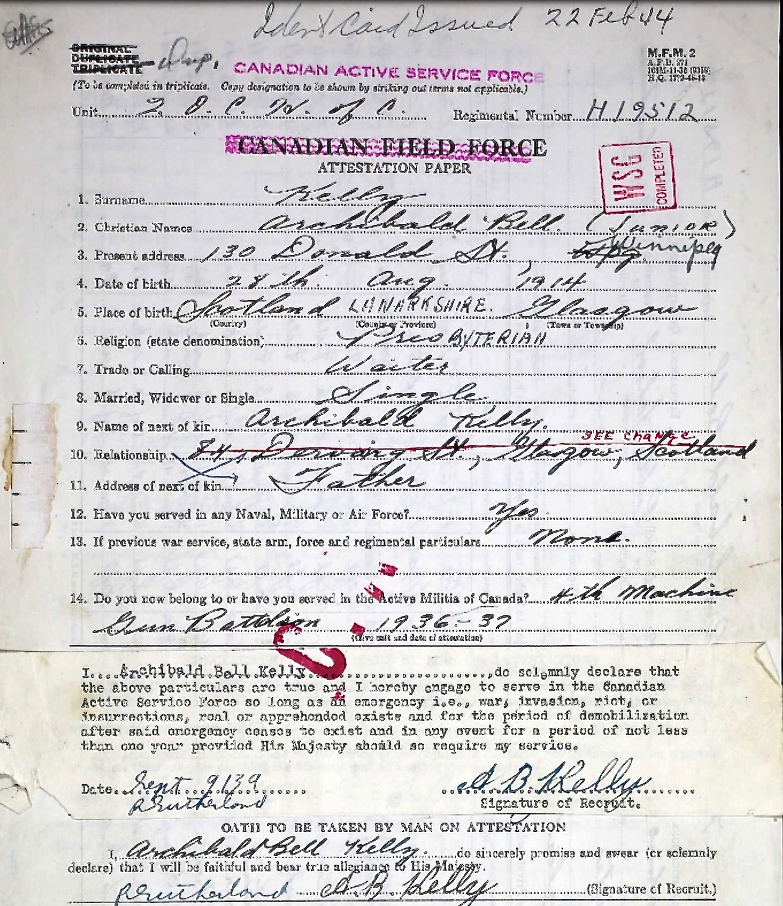 Ident Card Issued 22 Feb 44
ORIGINAL
DUPLICATE
TRIPLICATE
Dup.
CANADIAN ACTIVE SERVICE FORCE
M.F.M. 2
(To be completed in triplicate. Copy designation to be shown by striking out terms not applicable.)
Unit 2. D. C. H. of C. Regimental Number H19512
CANADIAN FIELD FORCE
ATTESTATION PAPER
WSG COMPLETED
1. Surname Kelly
2. Christian Names Archibald Bell (Junior)
3. Present address 130 Donald St., Wpg Winnipeg
4. Date of birth 28th Aug. 1914
5. Place of birth Scotland LANARKSHIRE. Glasgow
(Country) (County or Province) (Town or Township)
6. Religion (state denomination) PresBYTERIAN
7. Trade or Calling Waiter
8. Married, Widower or Single Single
9. Name of next of kin Archibald Kelly.
SEE CHANGE
10. Relationship St., Glasgow, Scotland
11. Address of next of kin Father
12. Have you served in any Naval, Military or Air Force? Yes
13. If previous war service, state arm, force and regimental particulars None.
14. Do you now belong to or have you served in the Active Militia of Canada? 4th Machine
Gun Battalion 1936-37
(Give unit and date of attestation)
I, Archibald Bell Kelly, do solemnly declare that
the above particulars are true and I hereby engage to serve in the Canadian
Active Service Force so long as an emergency i.e., war, invasion, riot, or
insurrections, real or apprehended exists and for the period of demobilization
after said emergency ceases to exist and in any event for a period of not less
than one year provided His Majesty should so require my service.
Date Sept 9/39 A B Kelly
R Sutherland Signature of Recruit.
OATH TO BE TAKEN BY MAN ON ATTESTATION
I, Archibald Bell Kelly. do sincerely promise and swear (or solemnly
declare) that I will be faithful and bear true allegiance to His Majesty.
R Sutherland A. B. Kelly (Signature of Recruit.)